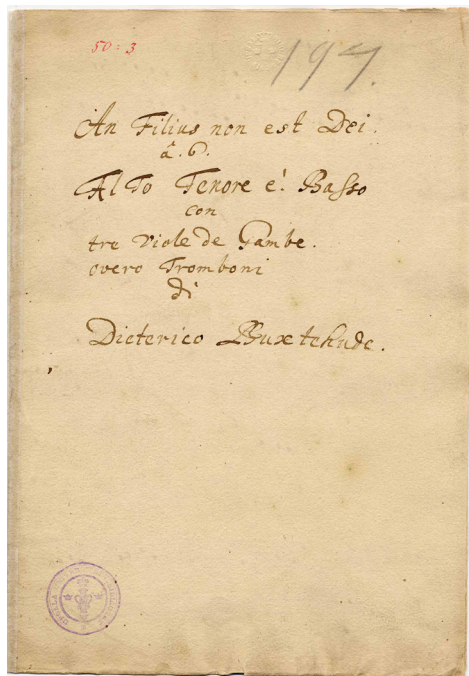 50:3
197.
An Filius non est Dei.
â. 6.
Alto Tenore è! Basso
con
tre Viole de Gambe.
overo Tromboni
di
Dieterico Buxtehude.